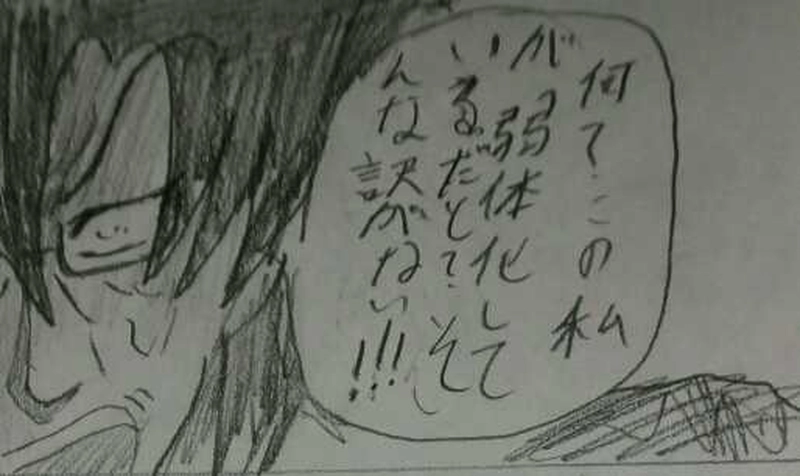 何て.この私
が弱体化して
いるだと?そ
んな訳がない!!!